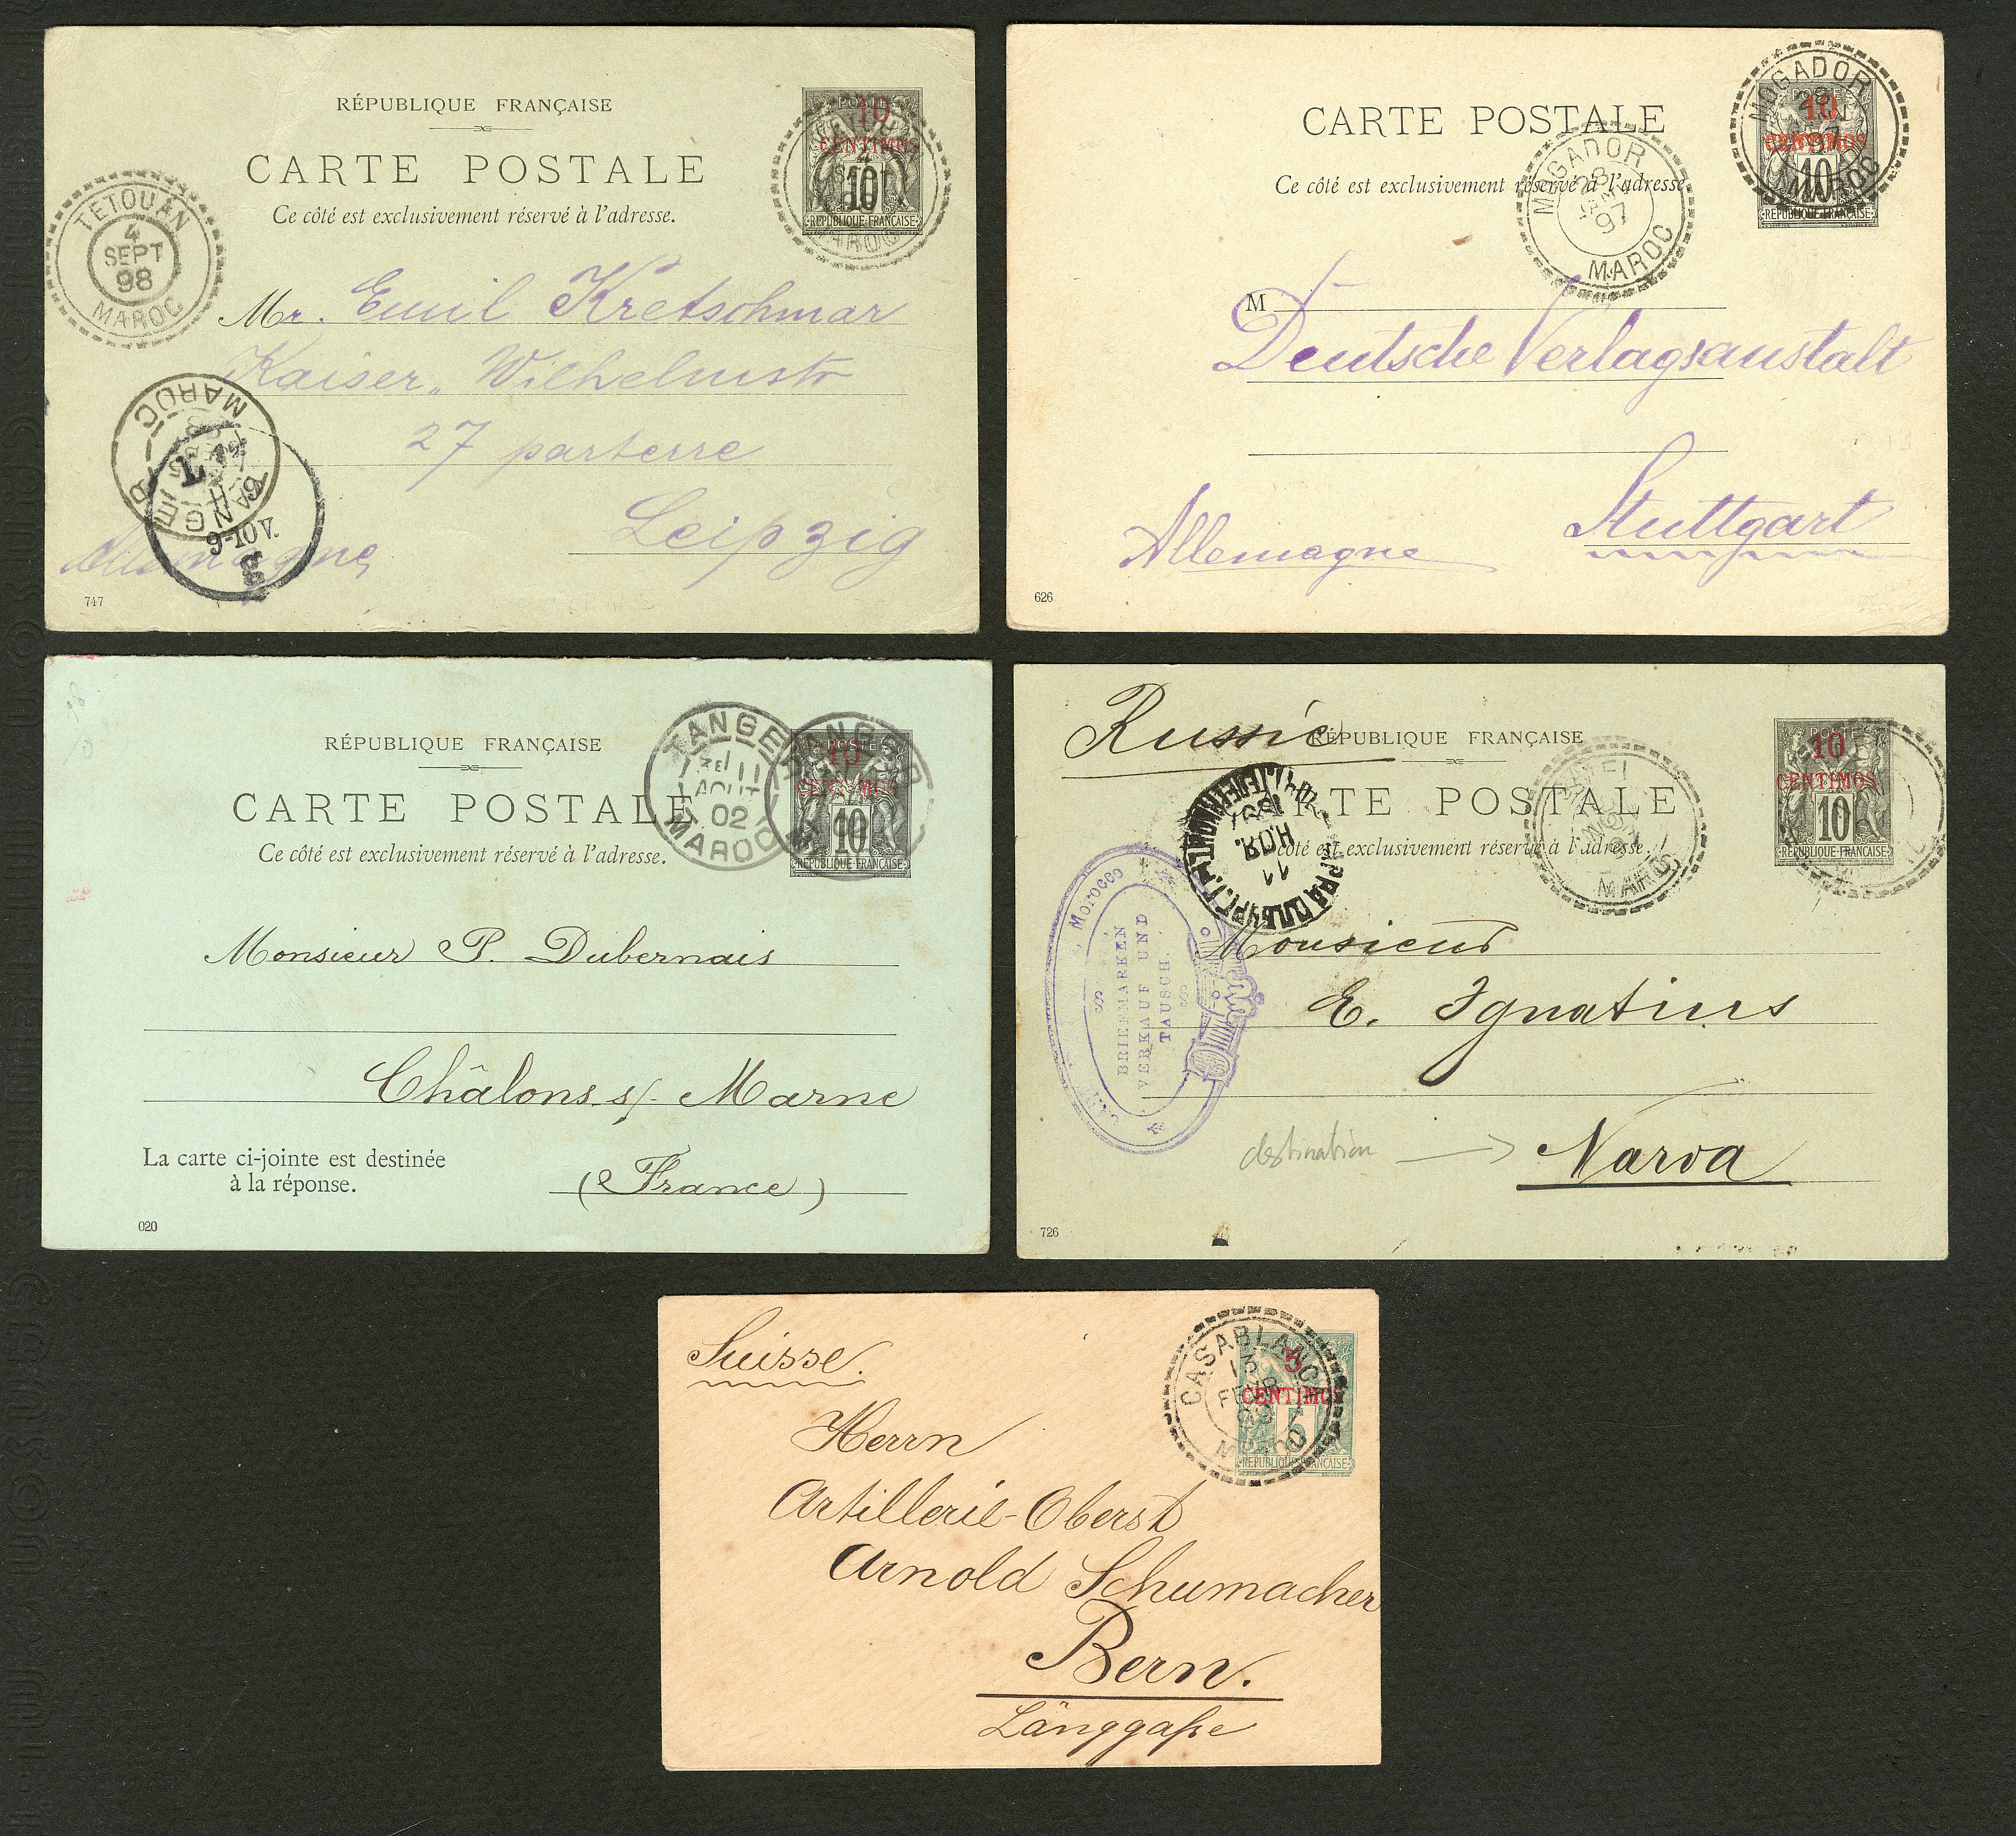 RÉPUBLIQUE FRANÇAISE
CARTE POSTALE
Ce côté est exclusivement réservé à l'adresse.
POSTE
10
CENTIMOS
10
RÉPUBLIQUE FRANÇAISE
SEPT
MAROC
TETOUAN
4
SEPT
98
MAROC
Mr. Emil Kretschmar
Kaiser Wilhelmstr
27 parterre
Leipzig
Allemagne
TANGER
MAROC
9-10 V.
747
CARTE POSTALE
Ce côté est exclusivement réservé à l'adresse
10
CENTIMOS
10
RÉPUBLIQUE FRANÇAISE
MOGADOR
MAROC
MOGADOR
28
JANV
97
MAROC
M
Deutsche Verlagsanstalt
Stuttgart
Allemagne
626
RÉPUBLIQUE FRANÇAISE
CARTE POSTALE
Ce côté est exclusivement réservé à l'adresse.
POSTE
10
CENTIMOS
10
RÉPUBLIQUE FRANÇAISE
TANGER
11
AOUT
02
MAROC
TANGER
Monsieur P. Dubernais
Châlons s/- Marne
La carte ci-jointe est destinée
à la réponse.
(France)
020
Russie
RÉPUBLIQUE FRANÇAISE
CARTE POSTALE
Ce côté est exclusivement réservé à l'adresse.
10
CENTIMOS
10
RÉPUBLIQUE FRANÇAISE
11
НОЯ.
1897
Morocco
BRIEFMARKEN
VERKAUF UND
TAUSCH.
Monsieur
E. Ignatius
destination
Narva
726
Suisse.
5
CENTIMOS
5
RÉPUBLIQUE FRANÇAISE
CASABLANCA
13
FEVR
MAROC
Herrn
Artillerie-Oberst
Arnold Schumacher
Bern.
Länggaße